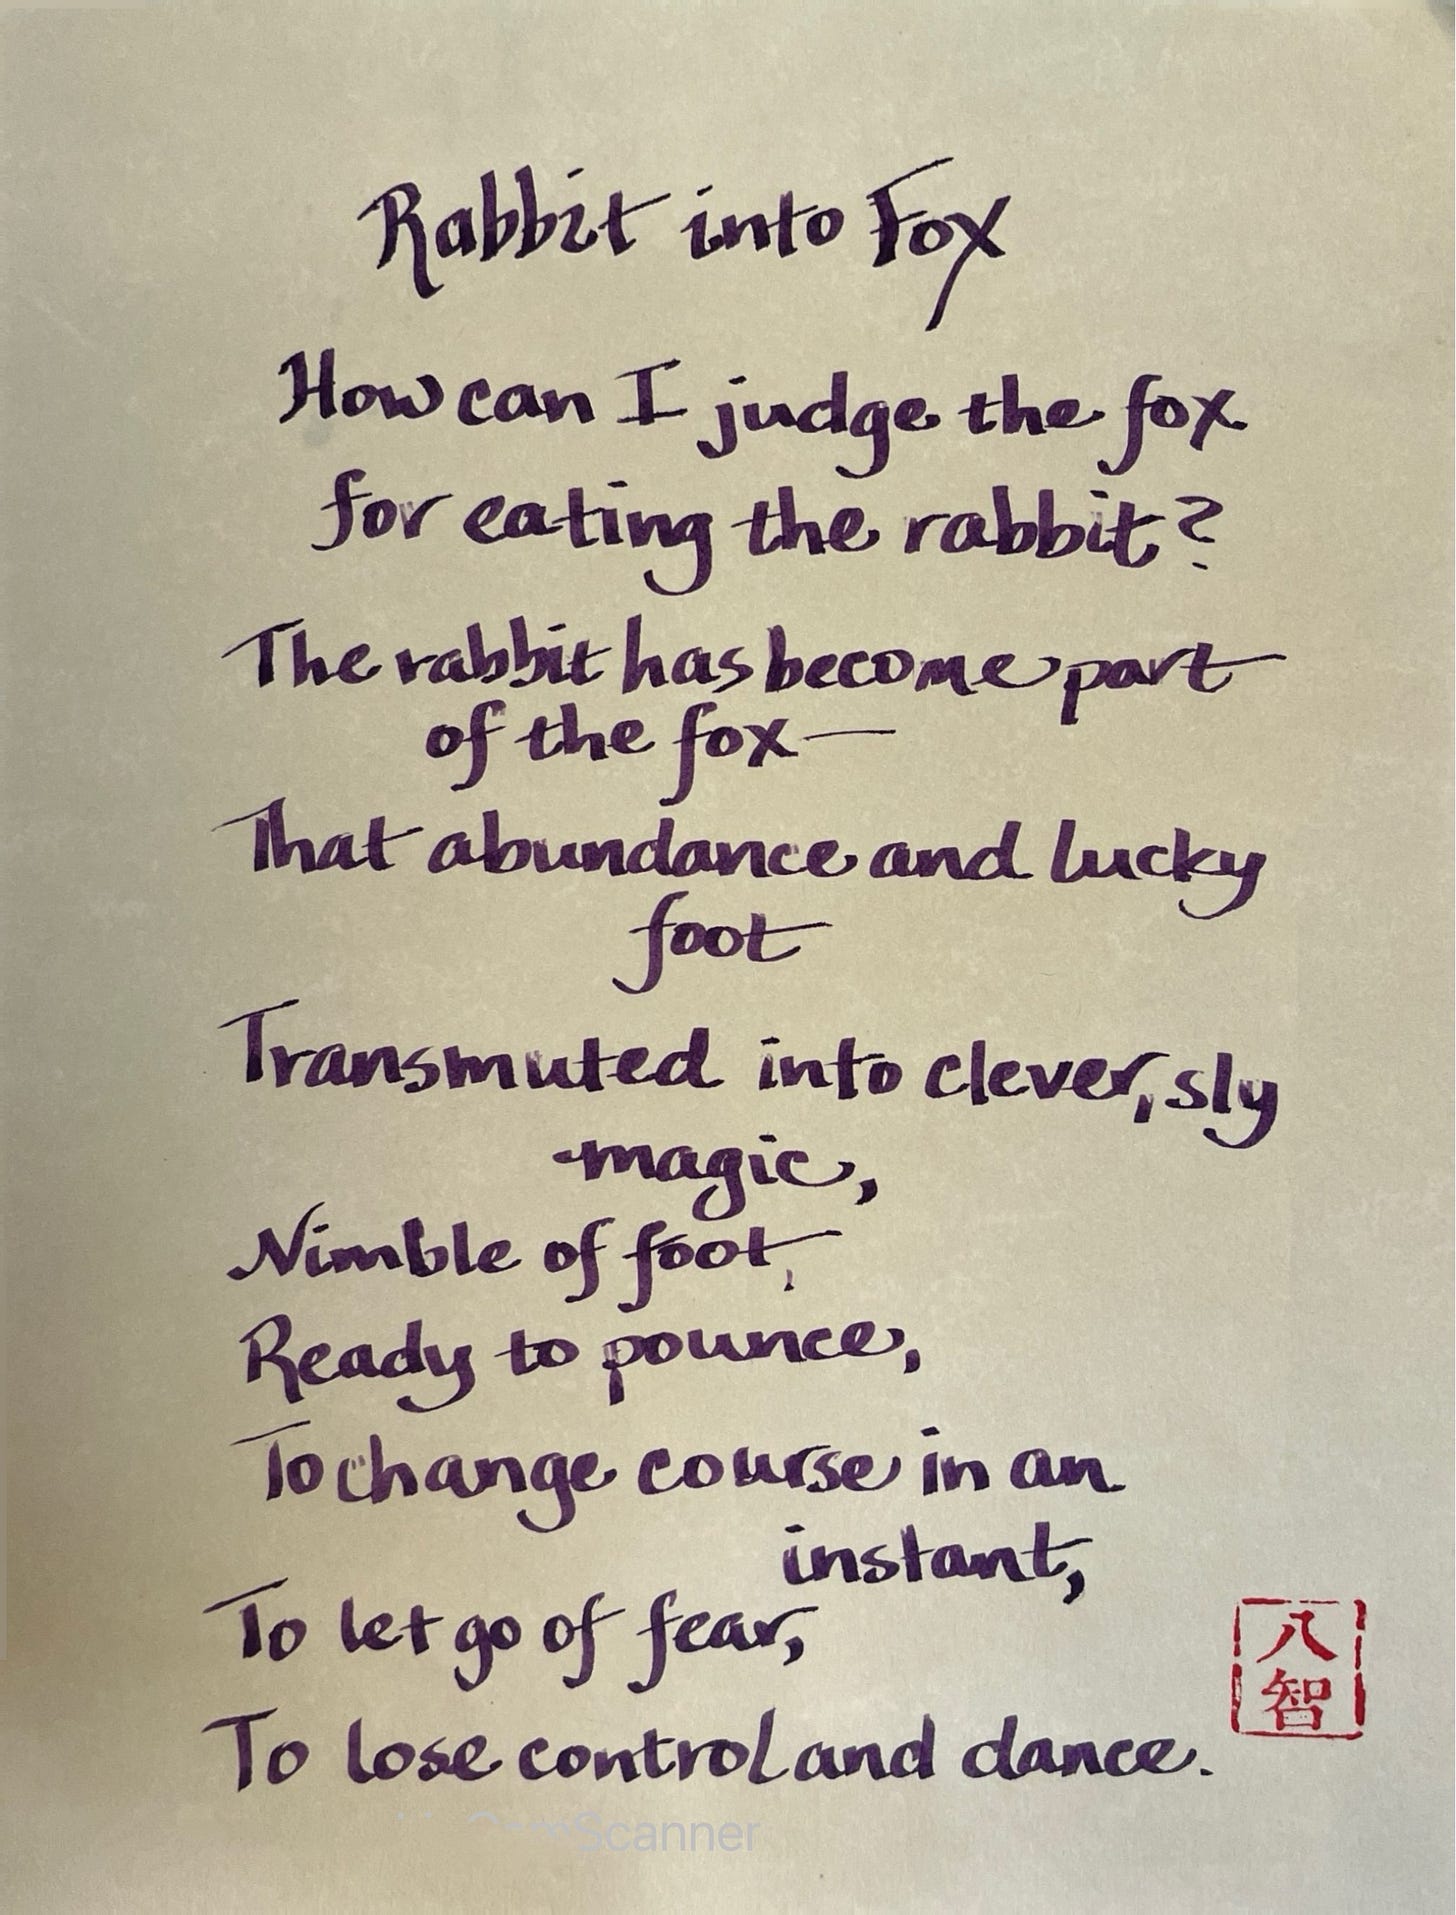 Rabbit into Fox
How can I judge the fox
for eating the rabbit?
The rabbit has become part
of the fox—
That abundance and lucky
foot
Transmuted into clever, sly
magic,
Nimble of foot,
Ready to pounce,
To change course in an
instant,
To let go of fear,
To lose control and dance.
八
智
Scanner